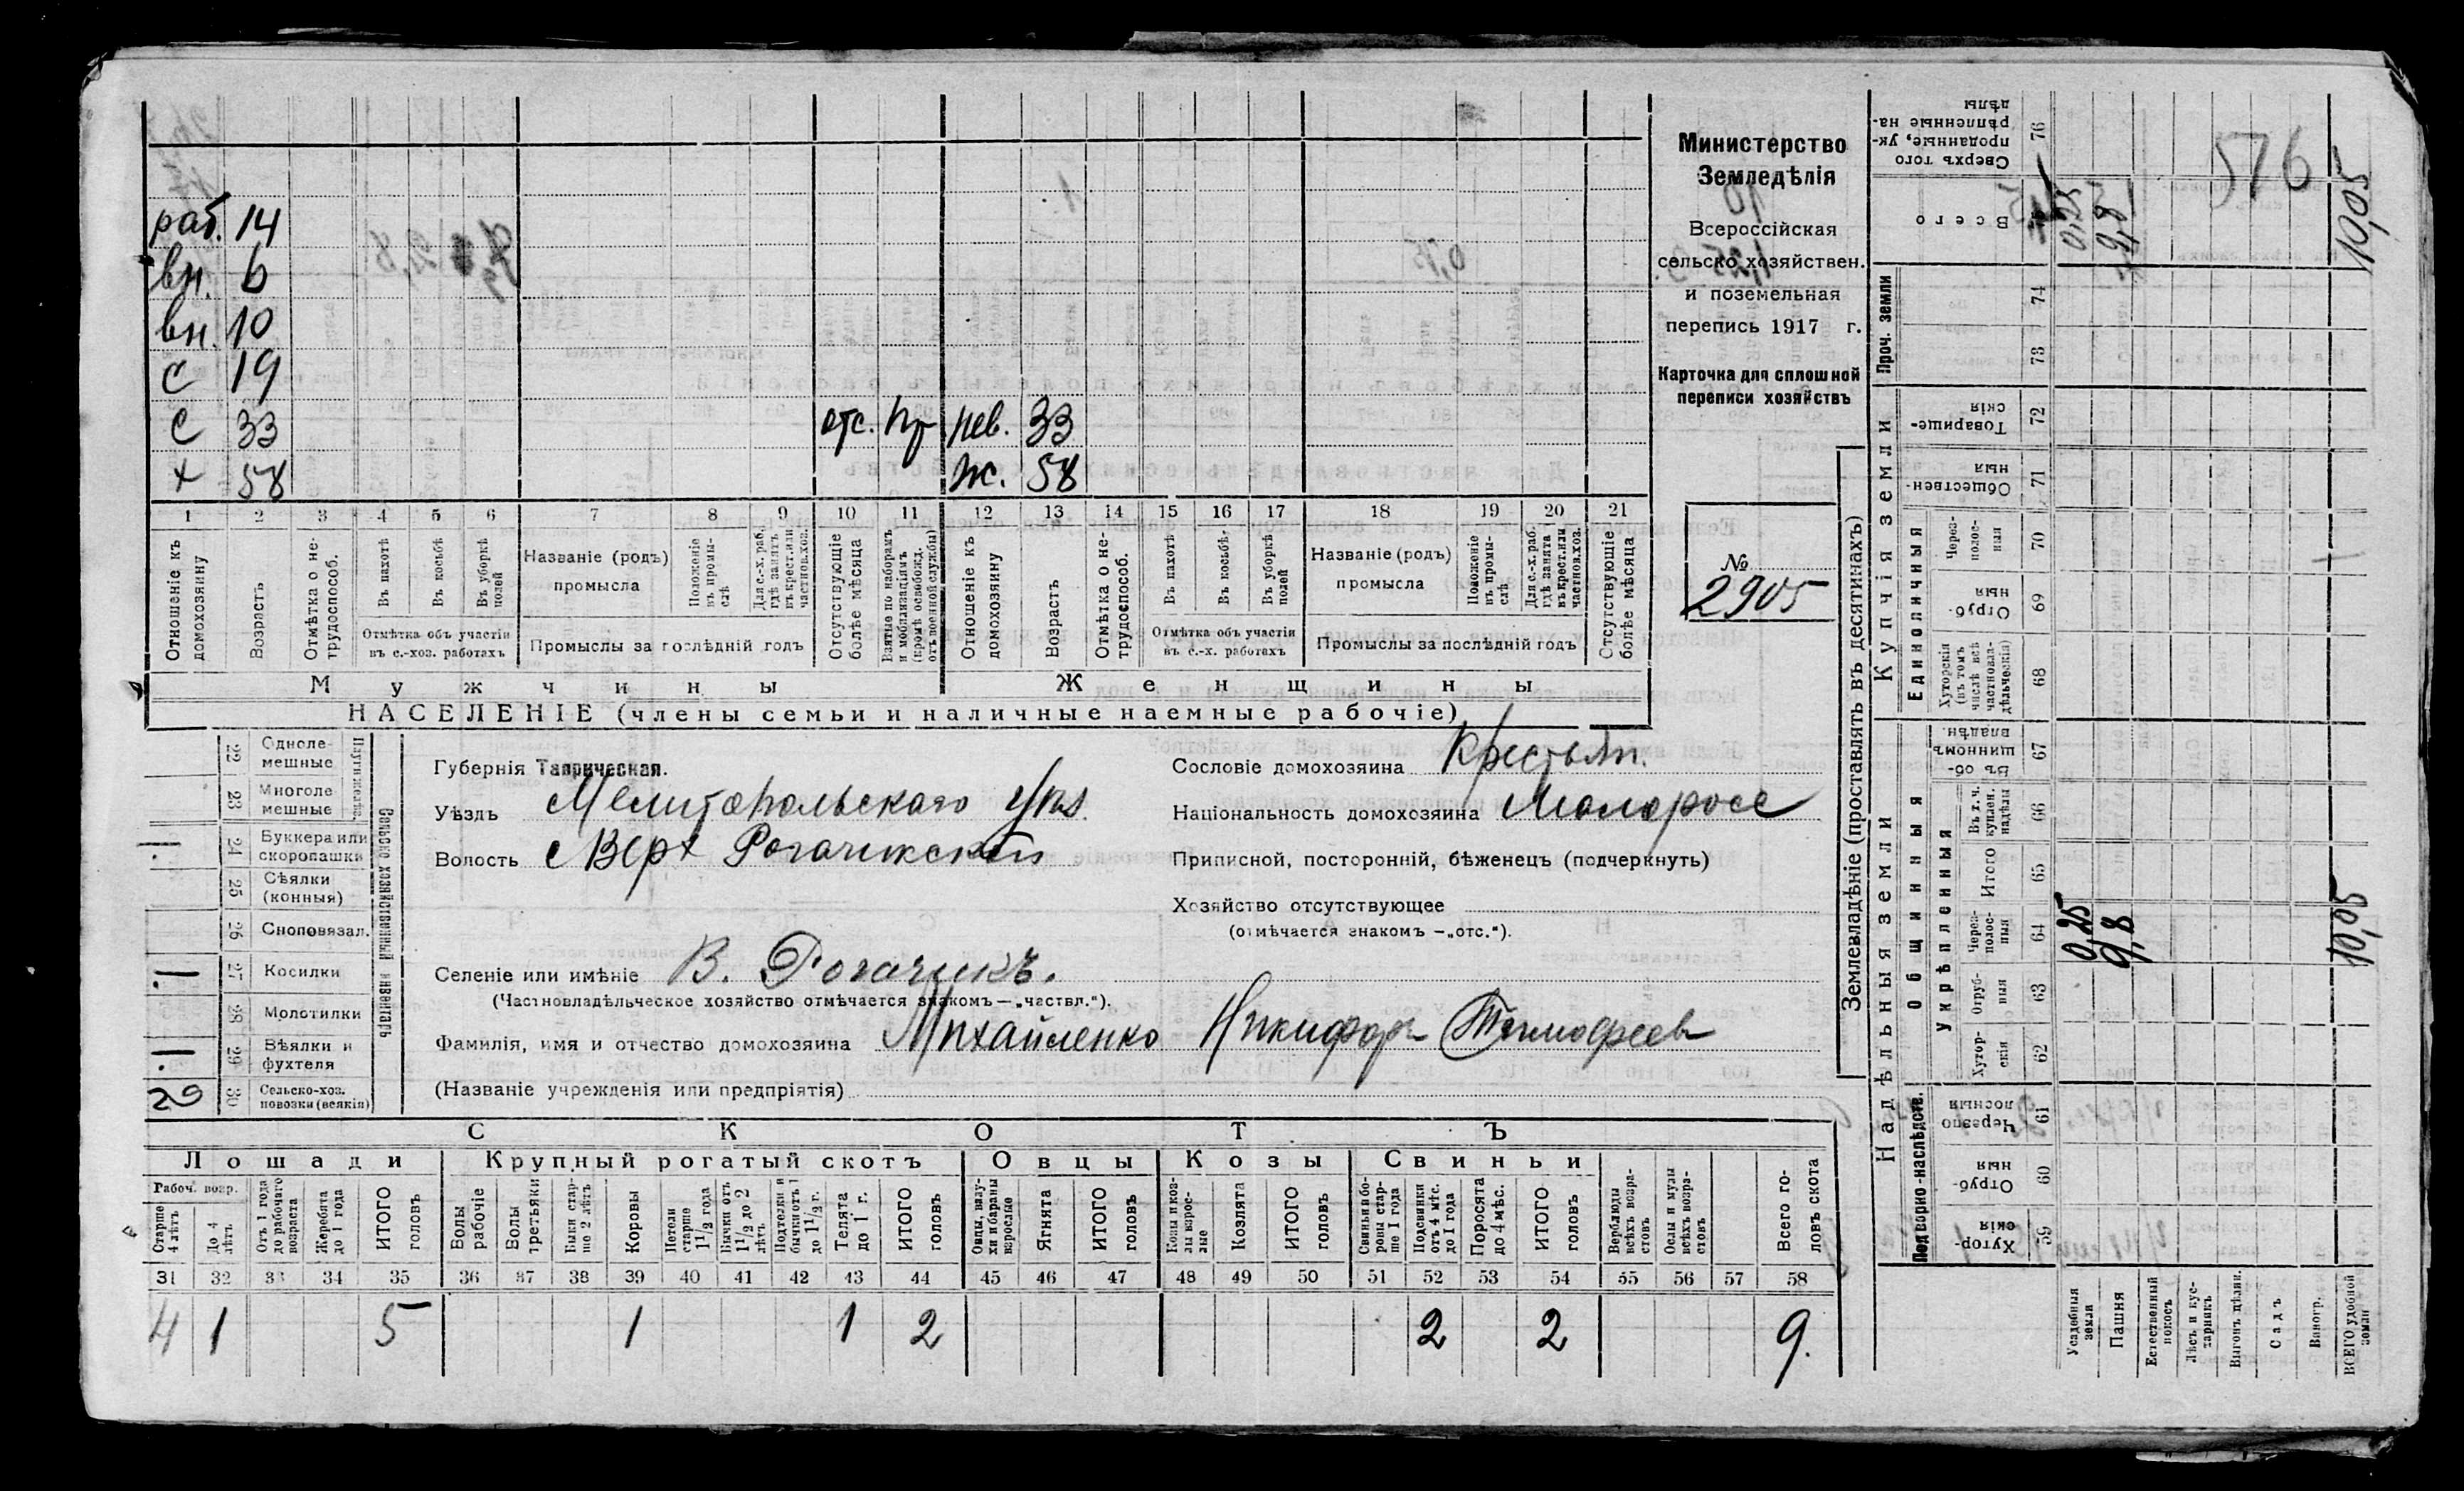 раб. 14
вн. 6
вн. 10
с 19
с 33 отс. пр нев. 33
х 58 ж. 58
1 2 3 4 5 6 7 8 9 10 11 12 13 14 15 16 17 18 19 20 21
Отношеніе къ домохозяину
Возрастъ
Отмѣтка о не-трудоспособ.
Въ пахотѣ
Въ косьбѣ
Въ уборкѣ полей
Отмѣтка объ участіи въ с.-хоз. работахъ
Названіе (родъ) промысла
Положеніе въ промы-слѣ
Для с.-х. раб. гдѣ занятъ въ крест. или частнов. хоз.
Промыслы за послѣдній годъ
Отсутствующіе болѣе мѣсяца
Взятые по наборамъ и мобилизаціямъ (кромѣ освобожд. отъ военной службы)
Отношеніе къ домохозяину
Возрастъ
Отмѣтка о не-трудоспособ.
Въ пахотѣ
Въ косьбѣ
Въ уборкѣ полей
Отмѣтка объ участіи въ с.-х. работахъ
Названіе (родъ) промысла
Положеніе въ промы-слѣ
Для с.-х. раб. гдѣ занята въ крест. или частнов. хоз.
Промыслы за послѣдній годъ
Отсутствующіе болѣе мѣсяца
Мужчины Женщины
НАСЕЛЕНІЕ (члены семьи и наличные наемные рабочіе)
Министерство
Земледѣлія
Всероссійская
сельско хозяйствен.
и поземельная
перепись 1917 г.
Карточка для сплошной
переписи хозяйствъ
№
2905
22 Однолемешные
23 Многолемешные
24 Буккера или скоропашки 1
25 Сѣялки (конныя)
26 Сноповязал.
27 Косилки 1
28 Молотилки
29 Вѣялки и фухтеля 1
30 Сельско-хоз. повозки (всякія)
Сельско хозяйственный инвентарь
Губернія Таврическая.
Уѣздъ Мелитопольскаго уѣз.
Волость Верх Рогачикской
Селеніе или имѣніе В. Рогачикъ.
(Частновладѣльческое хозяйство отмѣчается знакомъ — „частвл.“).
Фамилія, имя и отчество домохозяина Михайленко Никифоръ Тимофеев
(Названіе учрежденія или предпріятія)
Сословіе домохозяина Крестьян.
Національность домохозяина Малоросс
Приписной, посторонній, бѣженецъ (подчеркнуть)
Хозяйство отсутствующее
(отмѣчается знакомъ —„отс.“).
СКОТЪ
Лошади Крупный рогатый скотъ Овцы Козы Свиньи
Рабоч. возр.
Старше 4 лѣтъ
До 4 лѣтъ
Отъ 1 года до рабочаго возраста
Жеребята до 1 года
ИТОГО головъ
Волы рабочіе
Волы третьяки
Быки старше 2 лѣтъ
Коровы
Нетели старше 1½ года
Бычки отъ 1½ до 2 лѣтъ
Подтелки и бычки отъ 1 до 1½ г.
Телята до 1 г.
ИТОГО головъ
Овцы, валухи и бараны взрослые
Ягнята
ИТОГО головъ
Козы и козлы взрослые
Козлята
ИТОГО головъ
Свиньи и боровы старше 1 года
Подсвинки отъ 4 мѣс. до 1 года
Поросята до 4 мѣс.
ИТОГО головъ
Верблюды всѣхъ возрастовъ
Ослы и мулы всѣхъ возрастовъ
Всего головъ скота
31 32 33 34 35 36 37 38 39 40 41 42 43 44 45 46 47 48 49 50 51 52 53 54 55 56 57 58
4 1 5 1 1 2 2 2 9.
Землевладѣніе (проставлять въ десятинахъ)
Надѣльныя земли Купчія земли Проч. земли
Подворно-наслѣдств.
Общинныя
Укрѣпленныя
Единоличныя
59 Хуторскія
60 Отрубныя
61 Черезполосныя
62 Хуторскія
63 Отрубныя
64 Черезполосныя 0,25 9,8 10,05
65 Итого
66 Въ т. ч. куплен. надѣлы
67 Въ общинномъ владѣн.
68 Хуторскія (въ томъ числѣ всѣ частновладѣльческія)
69 Отрубныя
70 Черезполосныя
71 Общественныя
72 Товарищескія
73
74
Всего 0,25 9,8 10,05
76 Сверхъ того проданные, укрѣпленные надѣлы
576
Усадебныя земли
Пашня
Естественный покосъ
Лѣсъ и кустарникъ
Выгонъ цѣлин.
Садъ
Виногр.
ВСЕГО удобной земли